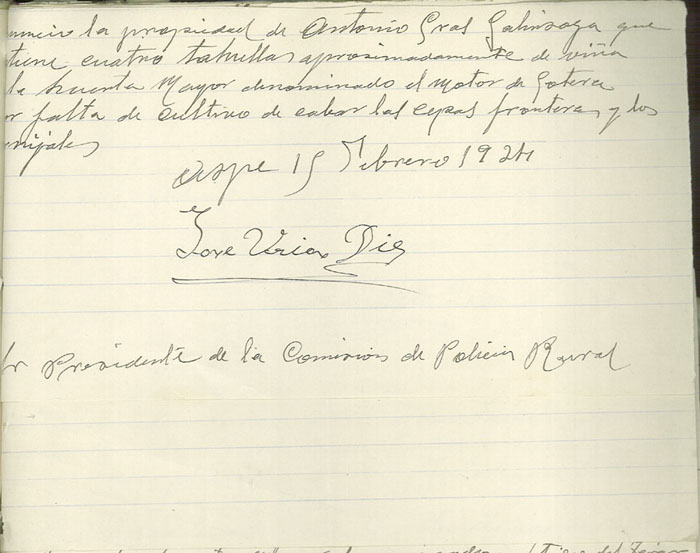 nuncio la propiedad de Antonio Gras Galinsoga que
tiene cuatro tahullas aprosimadamente de viña
la huerta Mayor denominado el motor de Gotera
or falta de cultivo de cabar las cepas fronteras y los
nijales
Aspe 15 Febrero 1924
Jose Urios Die
Sr Presidente de la Comision de Policia Rural